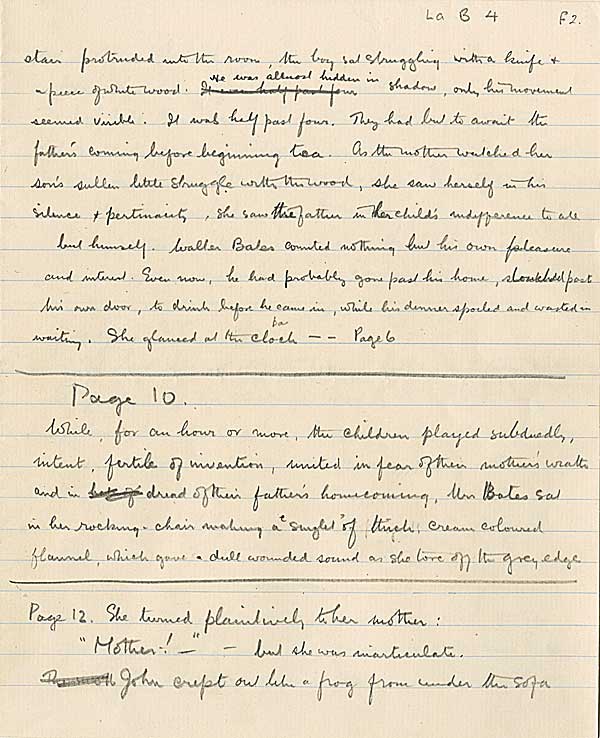 La B 4 F2.
stair protruded into the room, the boy sat struggling with a knife &
a piece of white wood. It was half past four He was almost hidden in shadow, only his movement
seemed visible. It was half past four. They had but to await the
father's coming before beginning tea. As the mother watched her
son's sullen little struggle with the wood, she saw herself in his
silence & pertinacity, she saw the father in her child's indifference to all
but himself. Walter Bates counted nothing but his own pleasure
and interest. Even now, he had probably gone past his home, slunk past
his own door, to drink before he came in, while his dinner spoiled and wasted in
waiting. She glanced at the clock — — Page 6
Page 10.
While, for an hour or more, the children played subduedly,
intent, fertile of invention, united in fear of their mother's wrath
and in dread of their father's homecoming, Mrs Bates sat
in her rocking-chair making a "singlet" of thick, cream coloured
flannel, which gave a dull wounded sound as she tore off the grey edge
Page 12. She turned plaintively to her mother:
"Mother! —" — but she was inarticulate.
John crept out like a frog from under the sofa